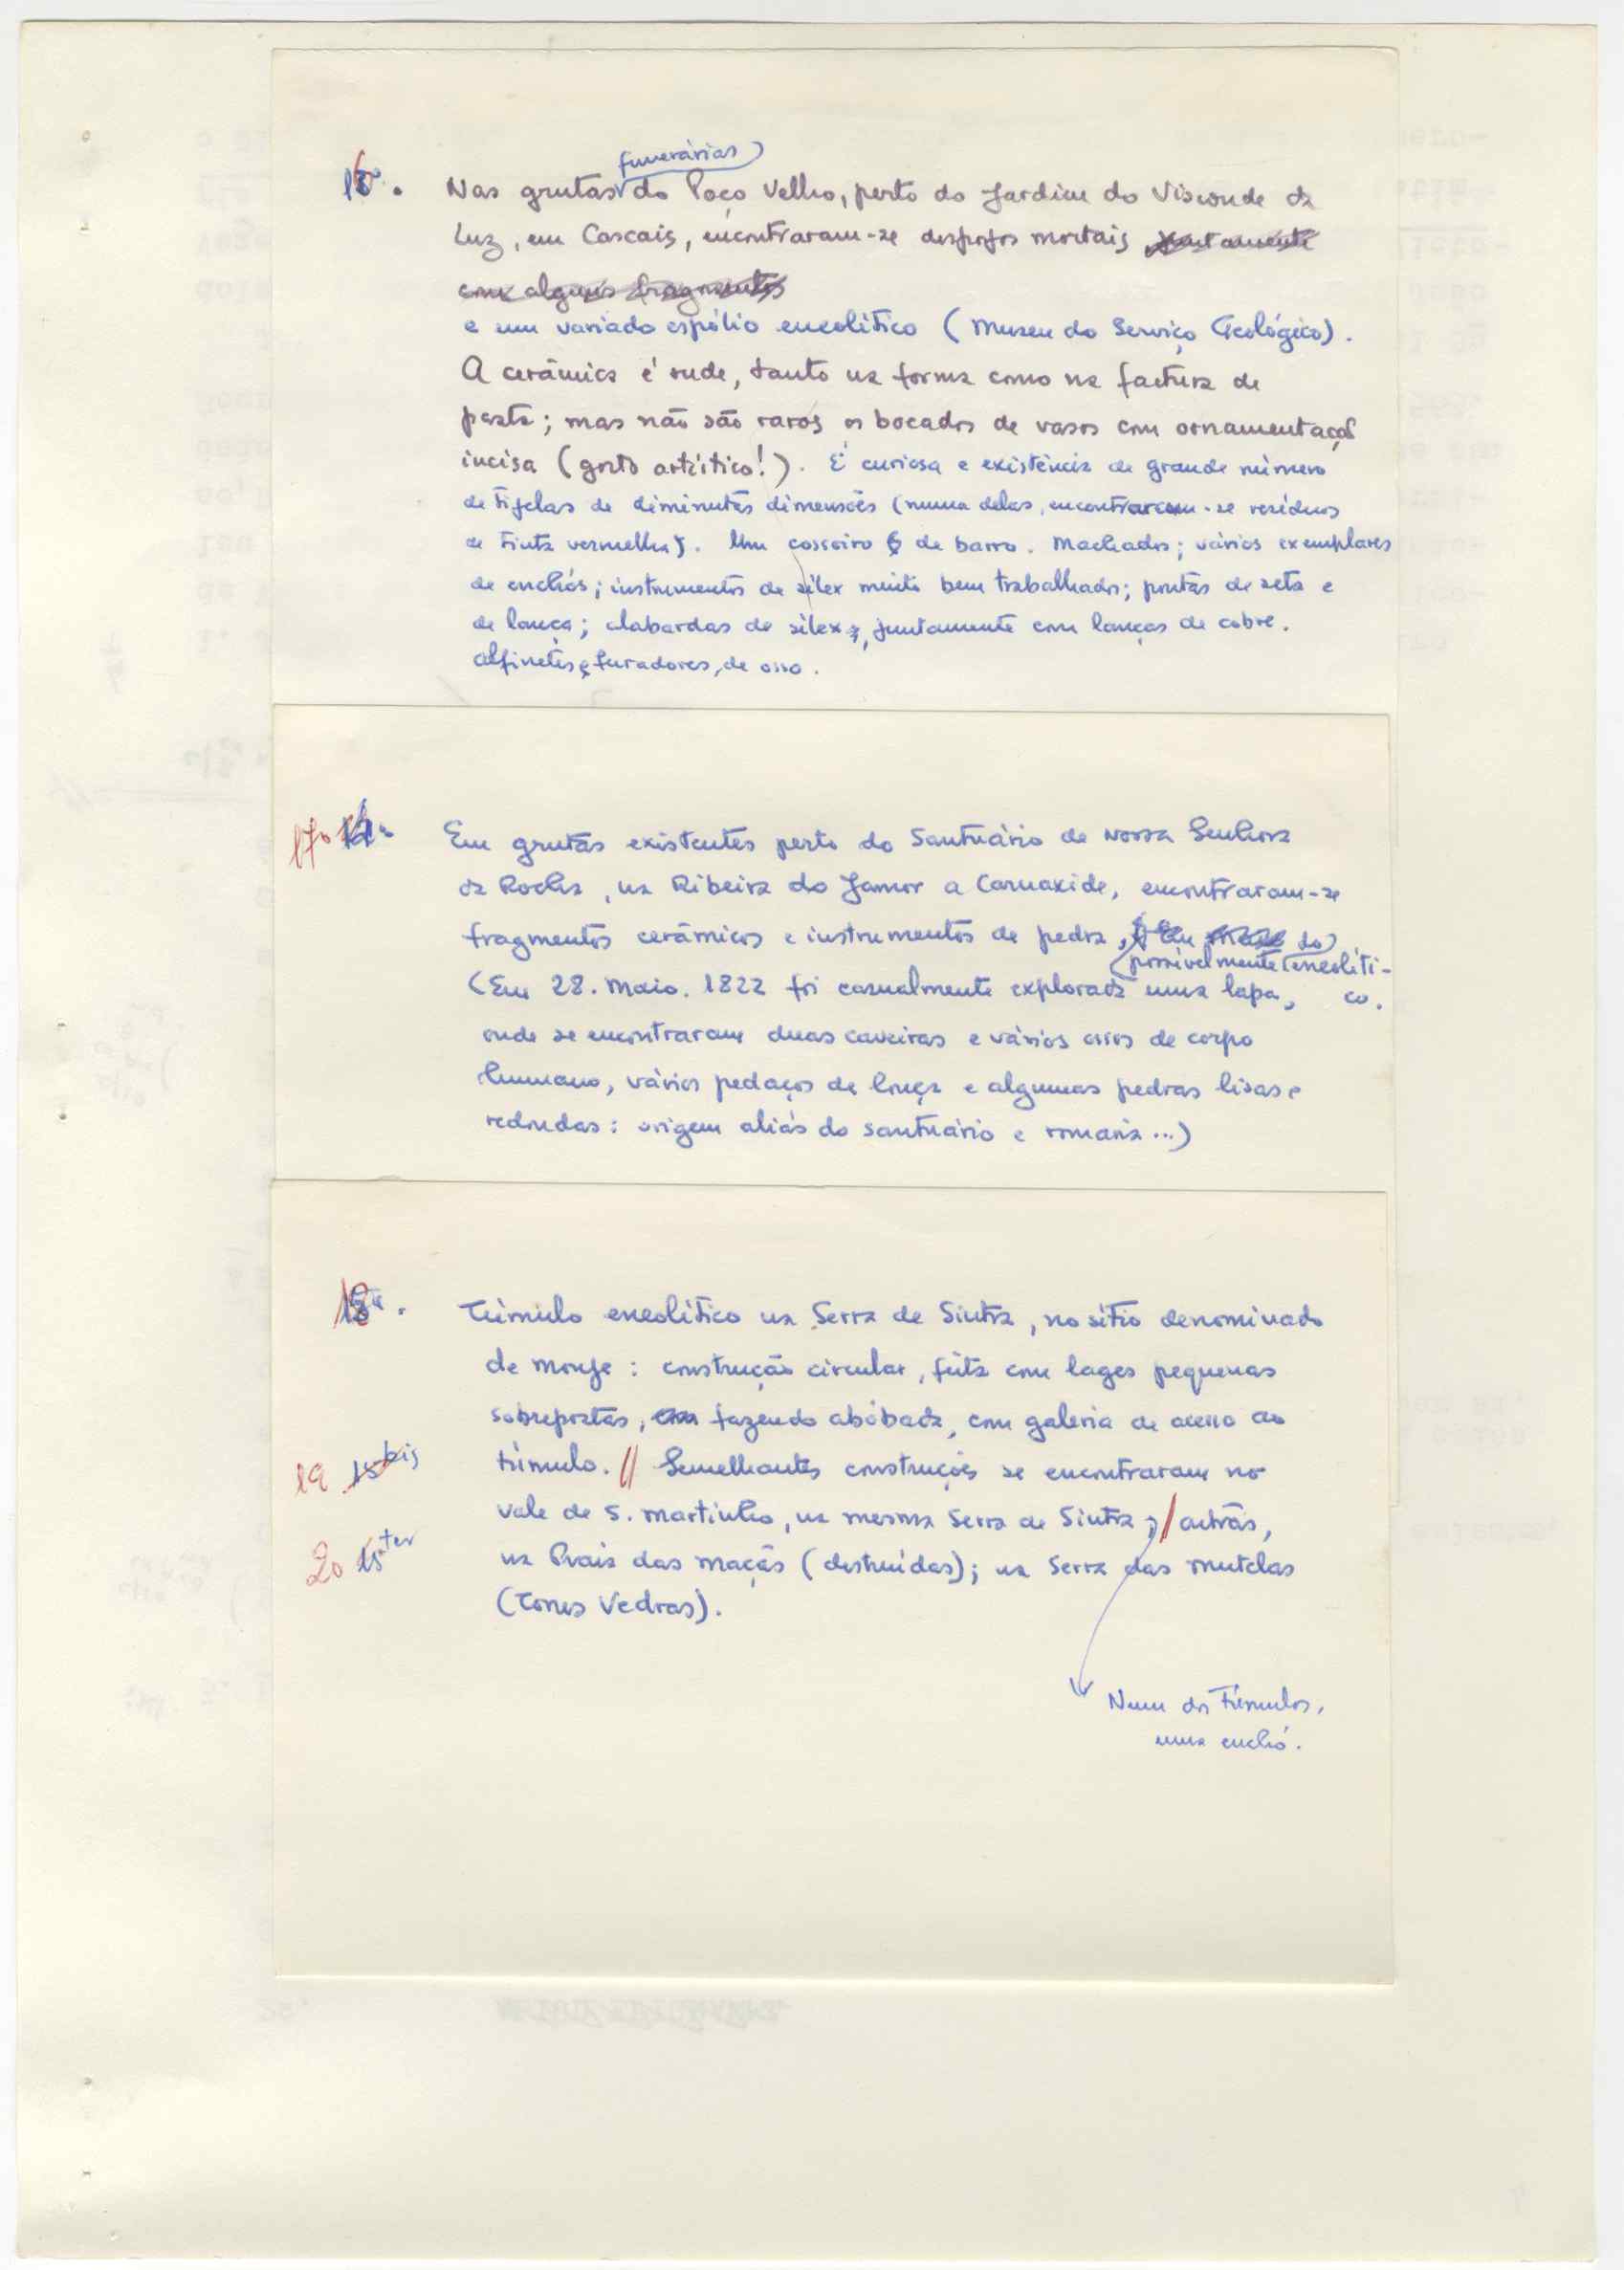 funerárias
16. Nas grutas do Poço Velho, perto do Jardim do Visconde da
Luz, em Cascais, encontraram-se despojos mortais juntamente
com alguns fragmentos
e um variado espólio eneolítico (Museu do Serviço Geológico).
A cerâmica é rude, tanto na forma como na factura da
pasta; mas não são raros os bocados de vasos com ornamentação
incisa (gosto artístico!). É curiosa a existência de grande número
de tijelas de diminutas dimensões (numa delas, encontraram-se resíduos
de tinta vermelha). Um cossoiro de barro. Machados; vários exemplares
de enchós; instrumentos de sílex muito bem trabalhados; pontas de seta e
de lança; alabardas de sílex, juntamente com lanças de cobre.
Alfinetes e furadores, de osso.
17. Em grutas existentes perto do Santuário de Nossa Senhora
da Rocha, na Ribeira do Jamor a Carnaxide, encontraram-se
fragmentos cerâmicos e instrumentos de pedra,
possivelmente eneolíti-
(Em 28. Maio. 1822 foi casualmente explorada uma lapa, co.
onde se encontraram duas caveiras e vários ossos de corpo
humano, vários pedaços de louça e algumas pedras lisas e
redondas: origem aliás do santuário e romaria ...)
18. Túmulo eneolítico na Serra de Sintra, no sítio denominado
de Monge: construção circular, feita com lages pequenas
sobrepostas, fazendo abóbada, com galeria de acesso ao
19 15 bis túmulo. // Semelhantes construções se encontraram no
vale de S. Martinho, na mesma Serra de Sintra; // outras,
20 15 ter na Praia das Maçãs (destruídas); na Serra das Mutelas
(Torres Vedras).
Num dos túmulos,
uma enchó.